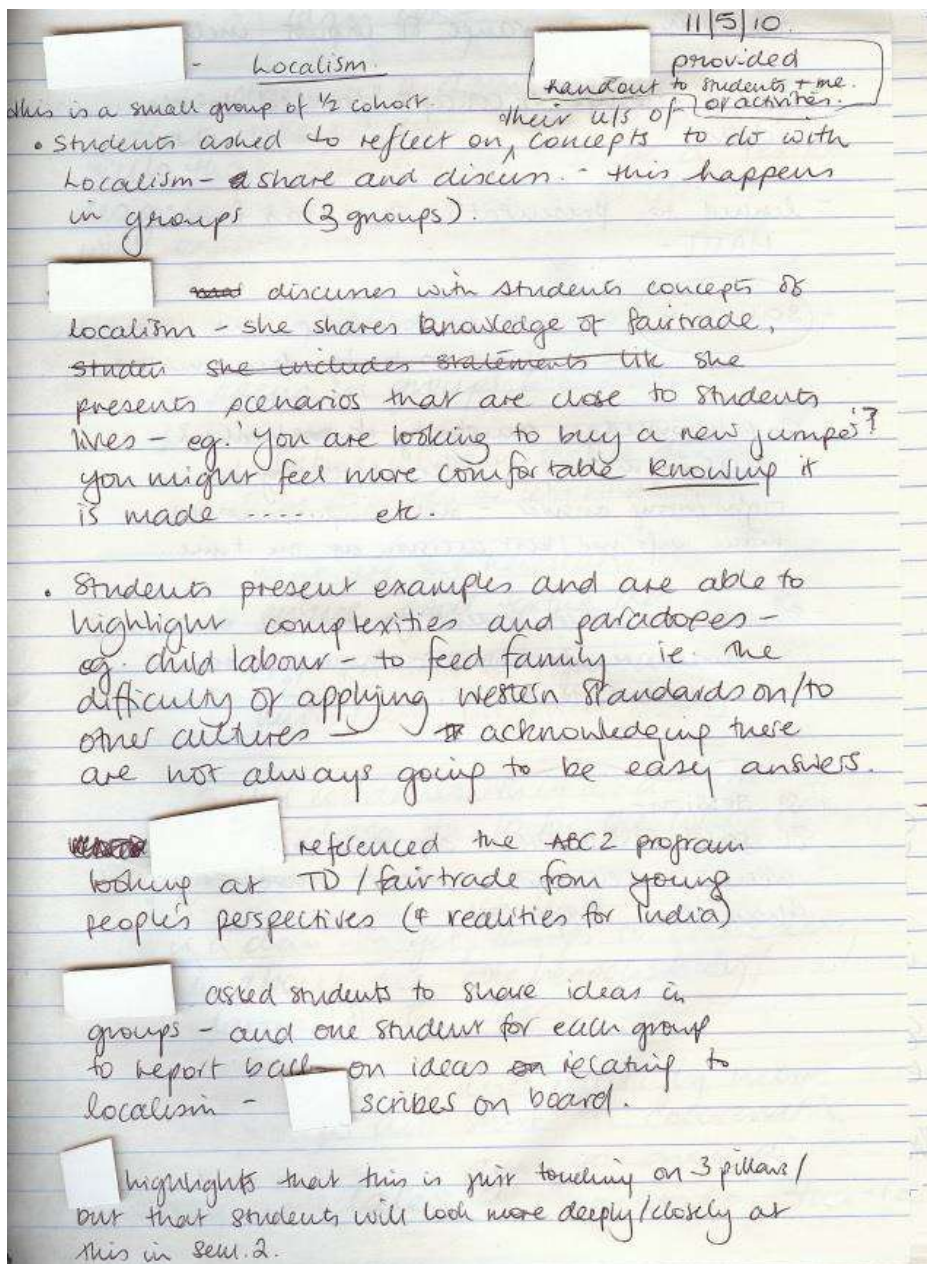 11/5/10.
- Localism.
provided
handout to students + me.
or activites.
this is a small group of ½ cohort.
their u/s of
• Students asked to reflect on ^ concepts to do with
Localism - share and discuss. - this happens
in groups (3 groups).
discusses with students concepts of
localism - she shares knowledge of fairtrade,
studen she includes statements lik she
presents scenarios that are close to students
lives - eg. 'you are looking to buy a new jumper'?
you might feel more comfortable knowing it
is made ---- etc.
• Students present examples and are able to
highlight complexities and paradoxes -
eg. child labour - to feed family ie. the
difficulty of applying western standards on/to
other cultures - acknowledging there
are not always going to be easy answers.
referenced the ABC2 program
looking at TD / fairtrade from young
people's perspectives (+ realities for India)
asked students to share ideas in
groups - and one student for each group
to report back on ideas on relating to
localism - scribes on board.
highlights that this is just touching on 3 pillars/
but that students will look more deeply/closely at
this in sem. 2.